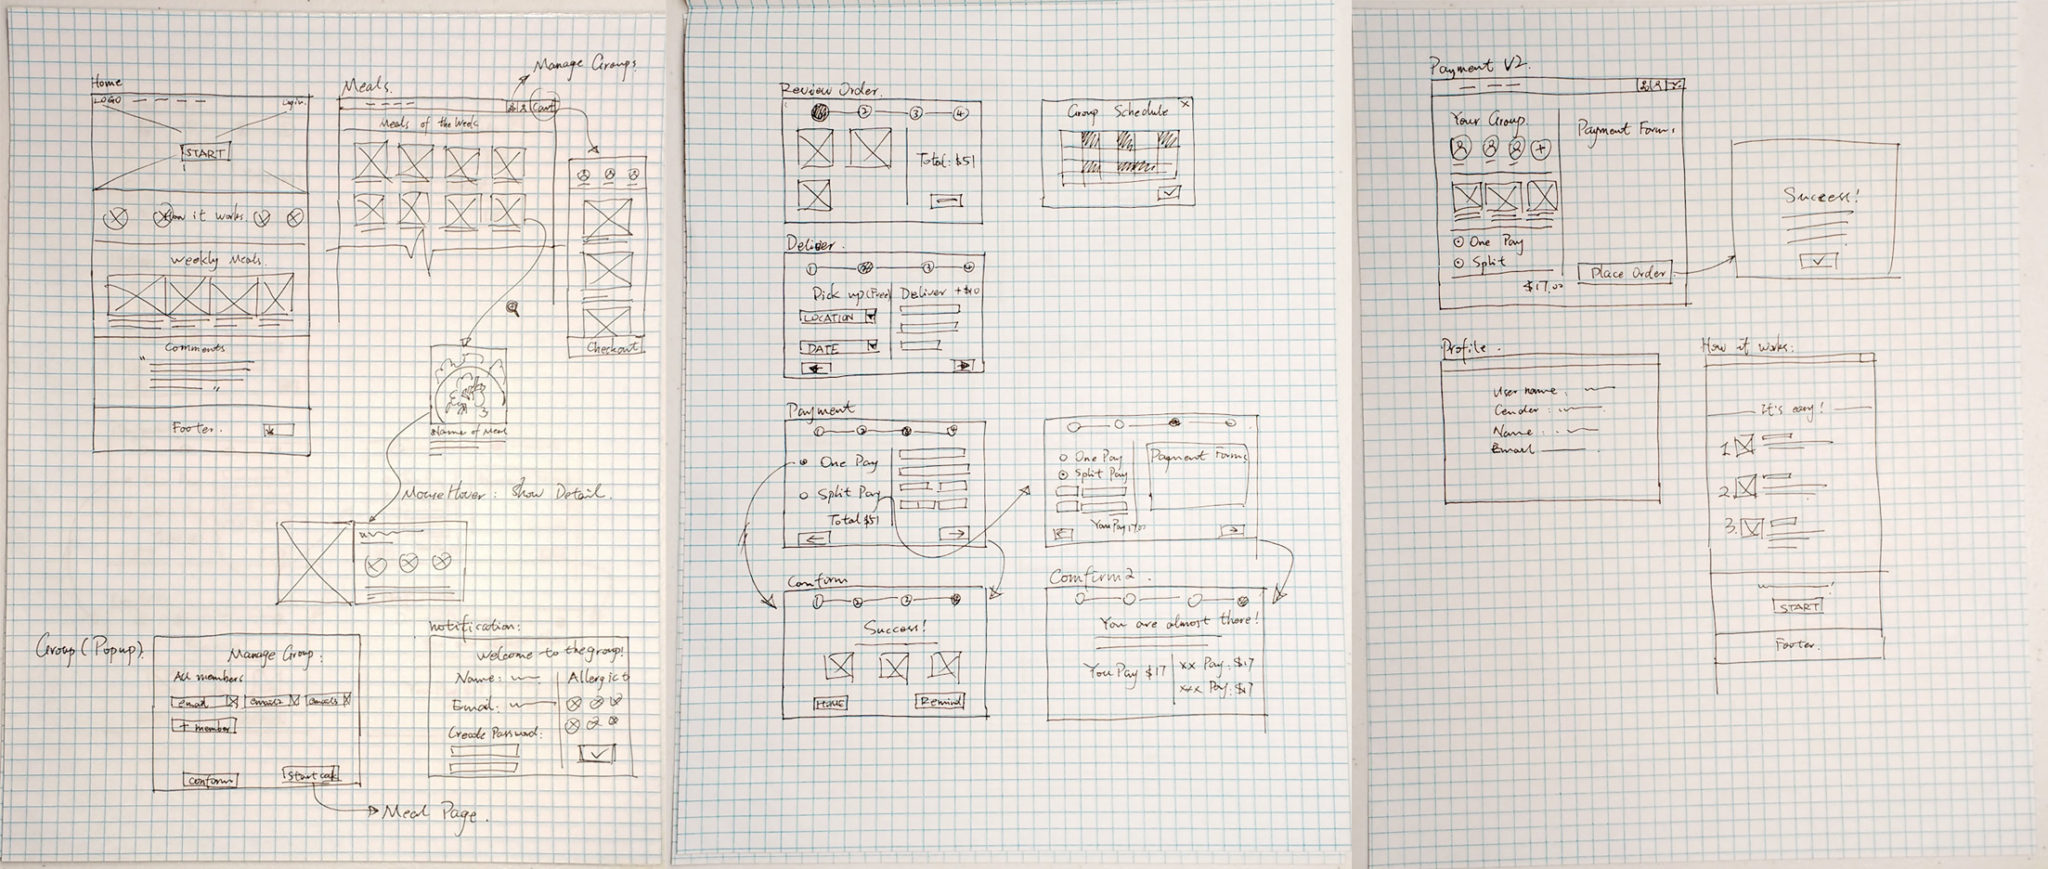 Home
LOGO
Login
START
How it works
Weekly Meals
Comments
"
"
Footer.
Meals.
Manage Groups
Cart
Meals of the Week
Checkout
Name of Meal
Mouse Hover: Show Detail.
Group (Popup).
Manage Group.
All members
email
email2
email3
+ member
Confirm
→ Meal Page.
notification:
Welcome to the group!
Name:
Email:
Create Password:
Allergict
Review Order.
1 2 3 4
Total: $51
Group Schedule
x
Deliver.
1 2 3 4
Pick up (Free)
LOCATION
DATE
Deliver + $10
Payment
1 2 3 4
One Pay
Split Pay
Total $51
One Pay
Split Pay
You Pay 17.00
Payment Forms
Confirm
1 2 3
Success!
Remind
Comfirm 2.
You are almost there!
You Pay $17
xx Pay: $17
xxx Pay: $17
Payment V2.
Your Group.
One Pay
Split
$17.00
Payment Forms
Place Order
Success!
Profile.
User name
Gender:
Name:
Email
How it works.
It's easy!
1.
2.
3.
START
Footer.